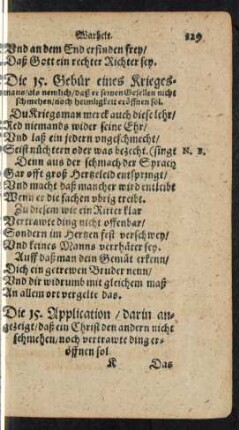 Warheit. 129
Vnd an dem End erfinden frey/
Daß Gott ein rechter Richter sey.
Die 15. Gebür eines Krieges-
mans/als nemlich/daß er seinen Gesellen nicht
schmehen/noch heimligkeit eröffnen sol.
DuKriegsman merck auch diese lehr/
Red niemands wider seine Ehr/
Vnd laß ein jedern vngeschmecht/
Seist nüchtern oder was bezecht. (singt N. B.
Denn aus der schmach der Sprach
Gar offt groß Hertzeleid entspringt/
Vnd macht daß mancher wird entleibt
Wenn er die sachen vbrig treibt.
Zu diesem wie ein Ritter klar
Vertrawte ding nicht offenbar/
Sondern im Hertzen fest verschwey/
Vnd keines Manns verrhäter sey.
Auff daß man dein Gemüt erkenn/
Dich ein getrewen Bruder nenn/
Vnd dir widrumb mit gleichem maß
An allem ort vergelte das.
Die 15. Application / darin an-
gezeigt/daß ein Christ den andern nicht
schmehen/noch vertrawte ding er-
öffnen sol
K Das